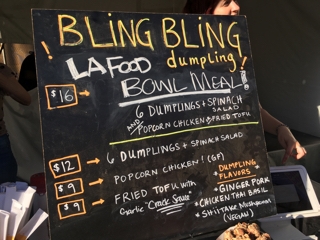 BLING BLING
dumpling!
LA FOOD
! BOWL MEAL!
$16
6 DUMPLINGS + SPINACH
SALAD
AND POPCORN CHICKEN or FRIED TOFU
$12 → 6 DUMPLINGS + SPINACH SALAD
$9 → POPCORN CHICKEN! (GF)
$9 → FRIED TOFU with
Garlic "Crack Sauce"
DUMPLING
FLAVORS
* GINGER PORK
* CHICKEN THAI BASIL
* SHIITAKE Mushroom
(VEGAN)